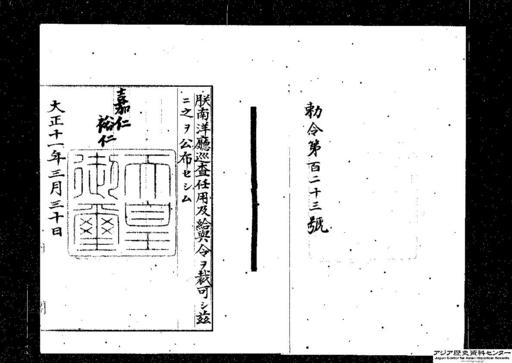 勅令第百二十三號
朕南洋廳巡査任用及給與令ヲ裁可シ茲
ニ之ヲ公布セシム
嘉仁
裕仁
天皇
御璽
大正十一年三月三十日
アジア歴史資料センター
Japan Center for Asian Historical Records